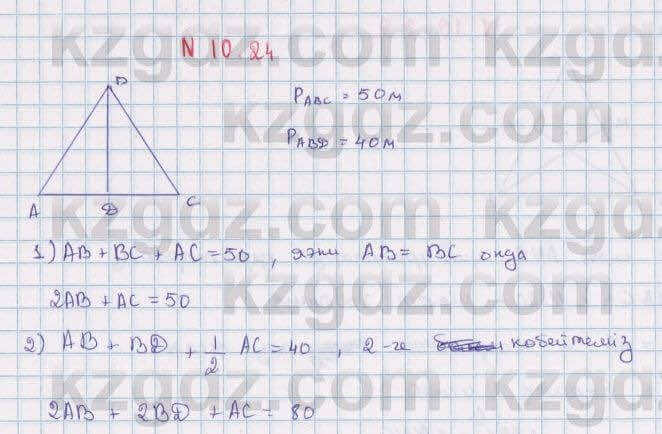 N 10.24
B
P_ABC = 50м
P_ABD = 40м
A D C
1) AB + BC + AC = 50, яғни AB = BC онда
2AB + AC = 50
2) AB + BD + 1/2 AC = 40, 2-ге көбейтеміз
2AB + 2BD + AC = 80
kzgdz.com